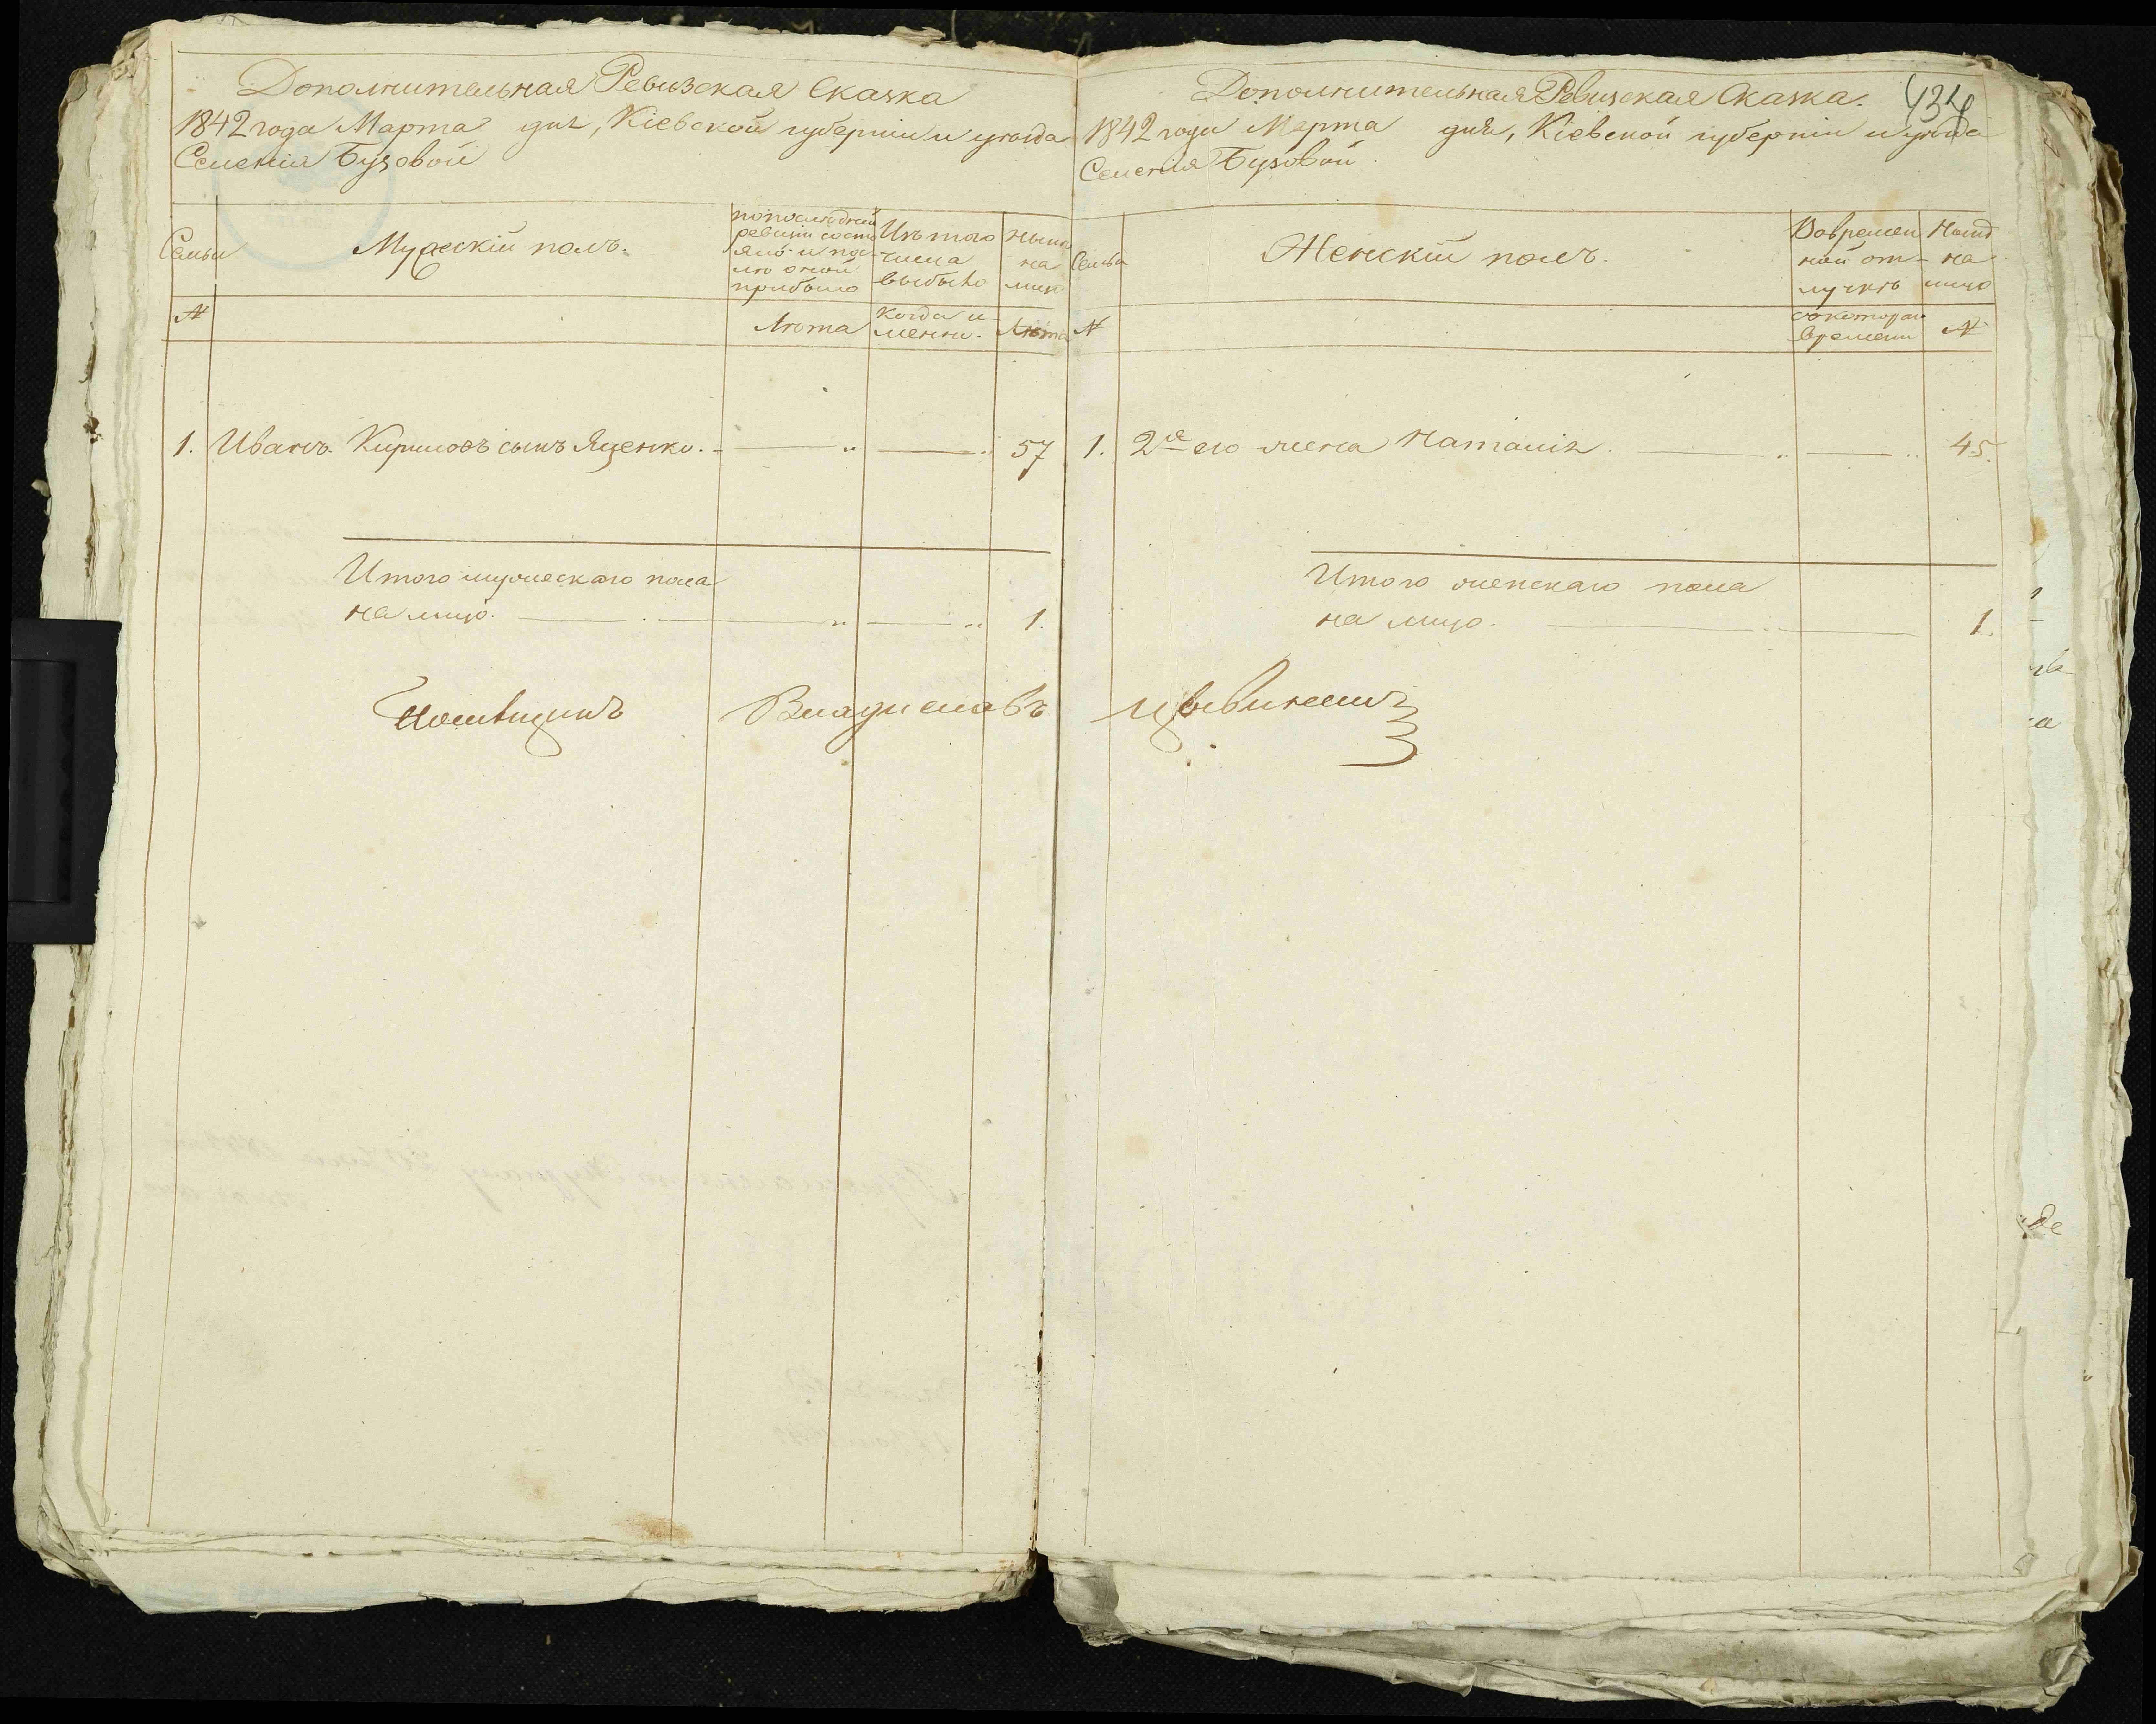 Дополнительная Ревизская Сказка
1842 года Марта дня, Кіевской губерніи и уѣзда
Селенія Бузовой
Семьи
Мужескій полъ.
по послѣдней
ревизіи состо
ялъ и пос-
лѣ оной
прибыло
Изъ того
числа
выбыло
Нынѣ
на
лицо
№
Лѣта
Когда и
менно.
Лѣта
1. Иванъ Кириловъ сынъ Яценко. 57
Итого мужескаго пола
на лицо. 1.
434
Дополнительная Ревизская Сказка.
1842 года Марта дня, Кіевской губерніи и уѣзда
Селенія Бузовой.
Семьи
Женскій полъ.
Вовремен
ной от-
лучкѣ
Нынѣ
на
лицо
№
съ котораго
времени
№
1. 2я его жена Наталія. 45.
Итого женскаго пола
на лицо. 1.
Помѣщикъ Владиславъ